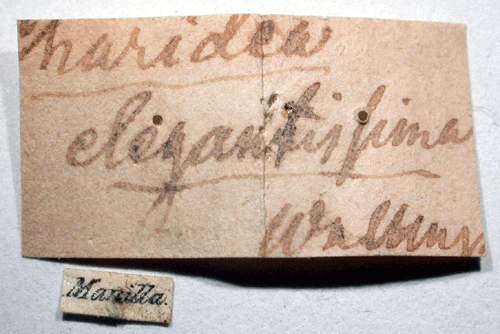 Charidea
elegantissima
Manilla.